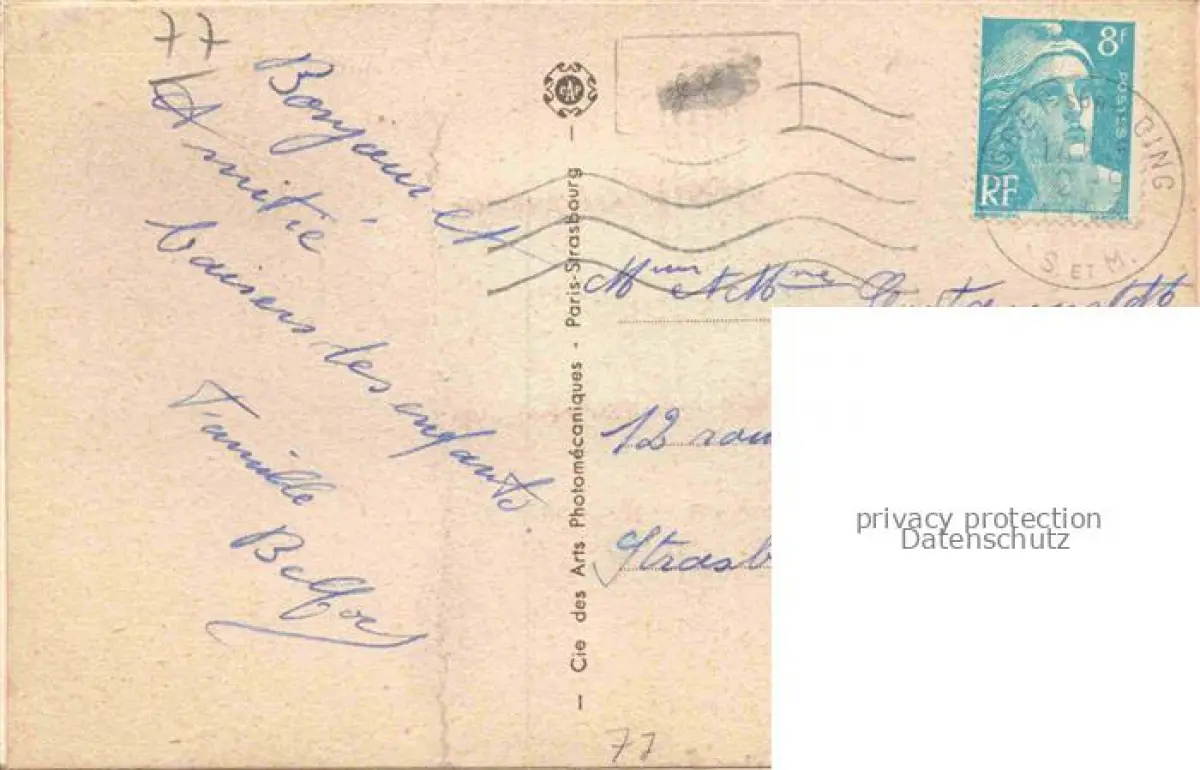 77
Bonjour et
Amitié
baisers, les enfants
Famille
— Cie des Arts Photomécaniques - Paris-Strasbourg —
CAP
8f
POSTES
RF
S. ET M.
Mr et Mme
12
Strasb
privacy protection
Datenschutz
77